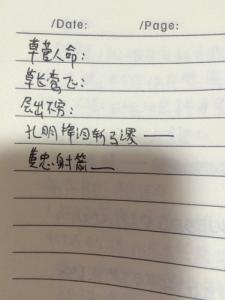 /Date: /Page:
草菅人命：
草长莺飞：
层出不穷：
孔明挥泪斩马谡——
黄忠射箭——